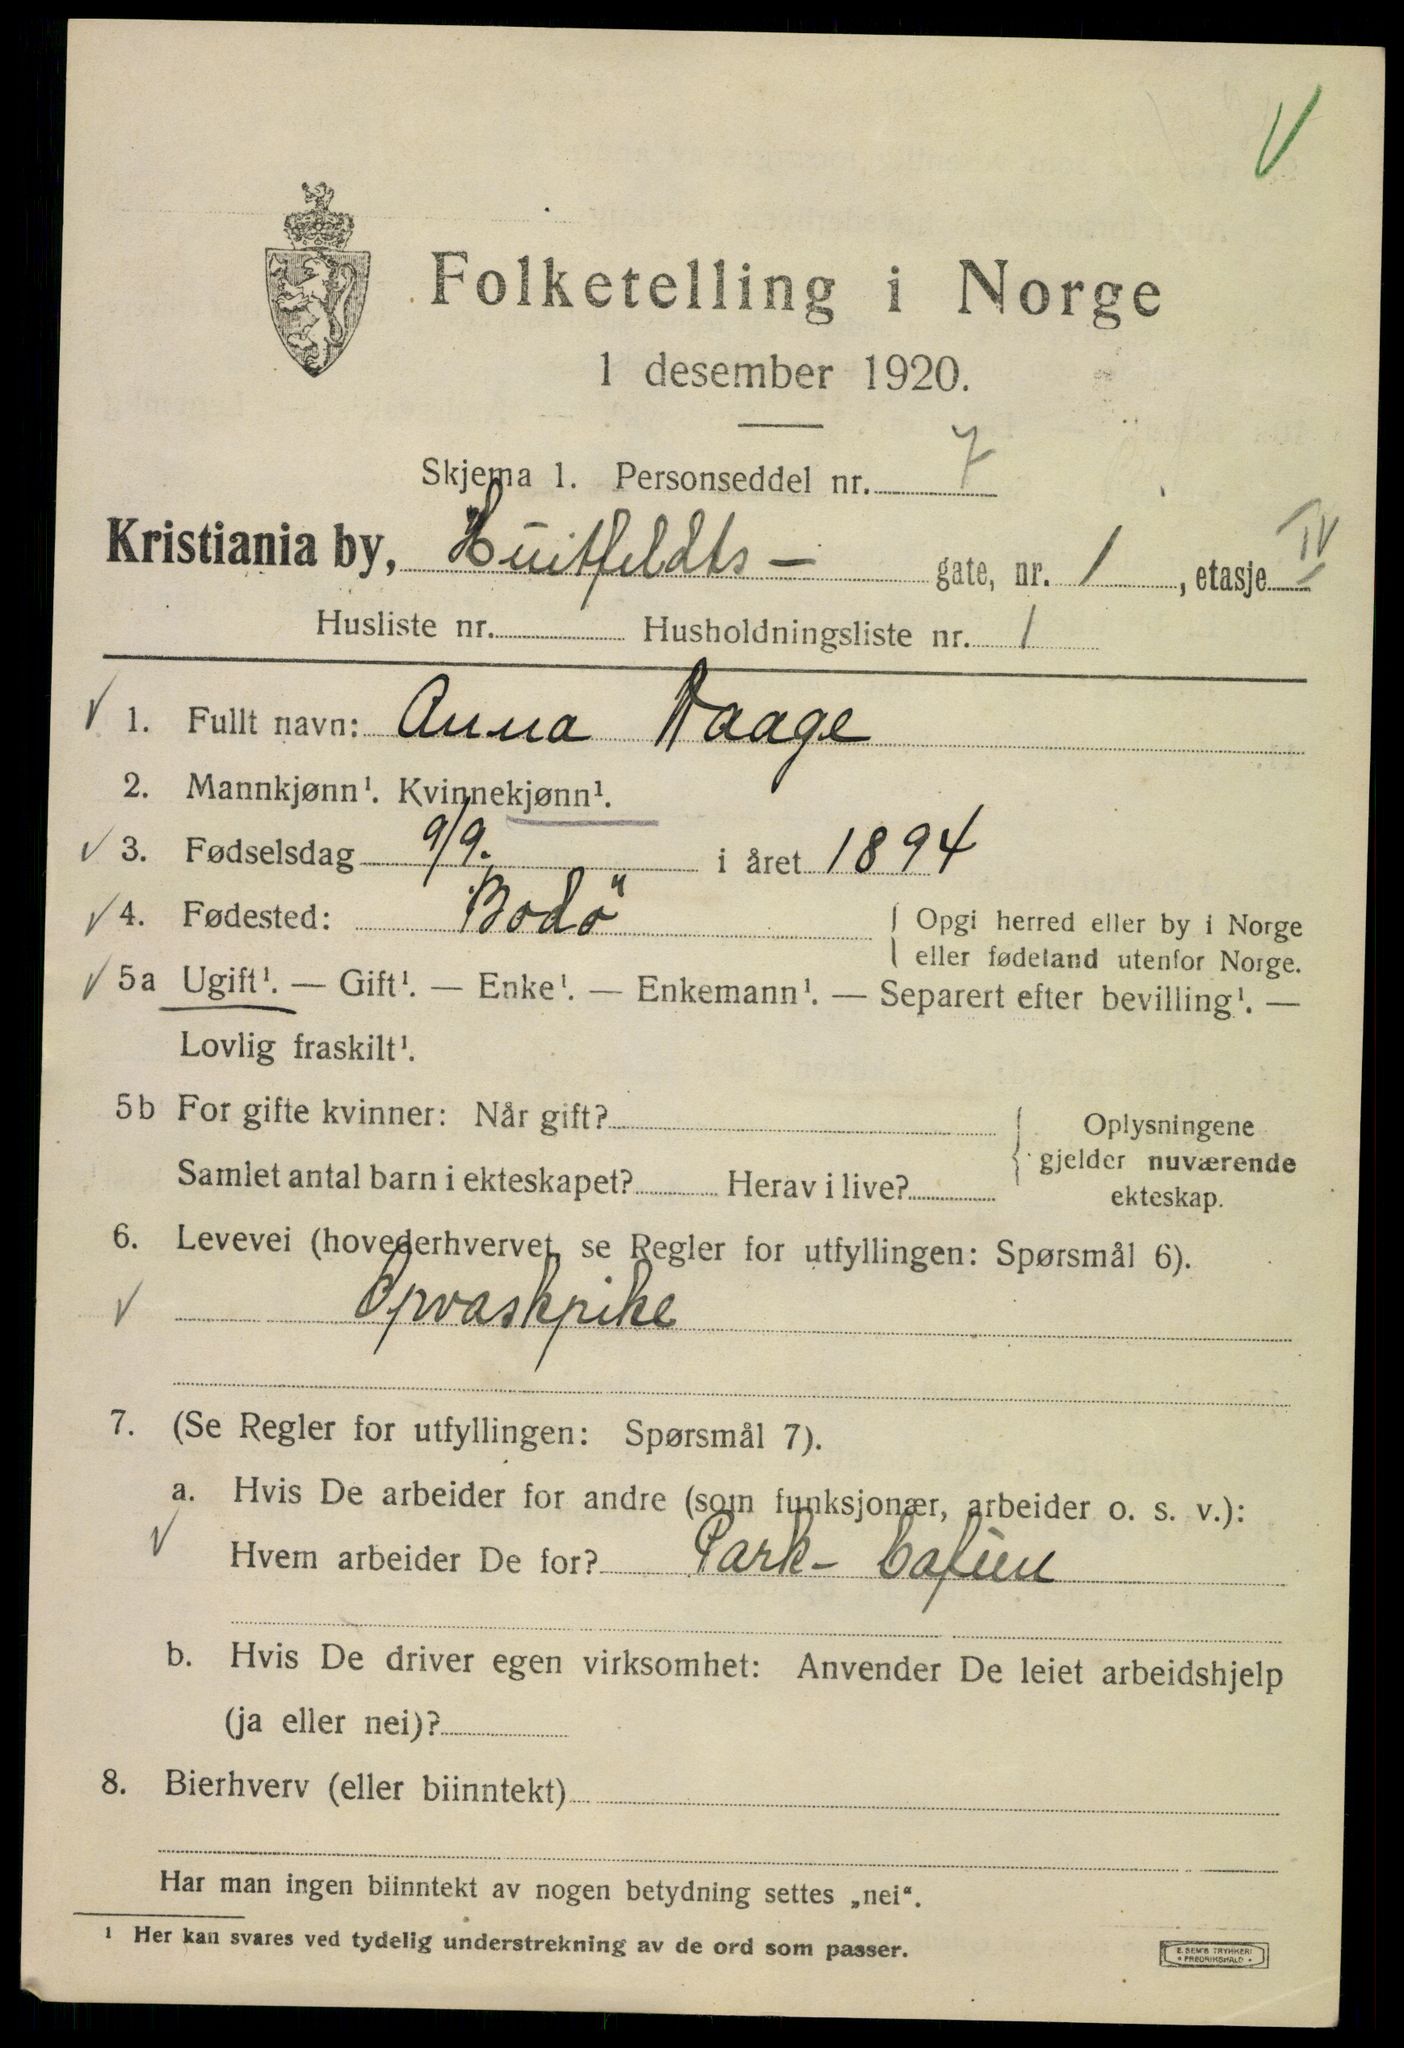 Folketelling i Norge
1 desember 1920.
Skjema 1. Personseddel nr. 7
Kristiania by, Huitfeldts - gate, nr. 1, etasje IV
Husliste nr. Husholdningsliste nr. 1
1. Fullt navn: Anna Raage
2. Mannkjønn¹. Kvinnekjønn¹.
3. Fødselsdag 9/9. i året 1894
4. Fødested: Bodö { Opgi herred eller by i Norge
eller fødeland utenfor Norge.
5a Ugift¹. — Gift¹. — Enke¹. — Enkemann¹. — Separert efter bevilling¹. —
Lovlig fraskilt¹.
5b For gifte kvinner: Når gift?
Samlet antal barn i ekteskapet? Herav i live?
Oplysningene
gjelder nuværende
ekteskap.
6. Levevei (hovederhvervet, se Regler for utfyllingen: Spørsmål 6).
Opvaskpike
7. (Se Regler for utfyllingen: Spørsmål 7).
a. Hvis De arbeider for andre (som funksjonær, arbeider o. s. v.):
Hvem arbeider De for? Park-Cafeen
b. Hvis De driver egen virksomhet: Anvender De leiet arbeidshjelp
(ja eller nei)?
8. Bierhverv (eller biinntekt)
Har man ingen biinntekt av nogen betydning settes „nei“.
¹ Her kan svares ved tydelig understrekning av de ord som passer.
E. SEM'S TRYKKERI
• FREDRIKSHALD •